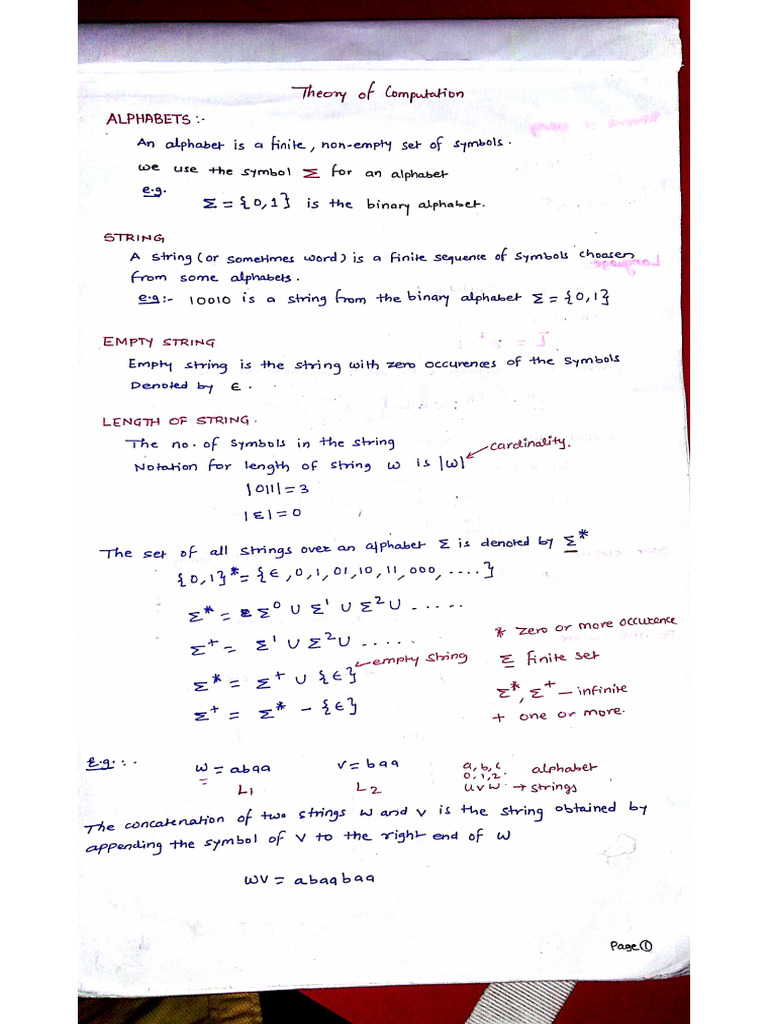 Theory of Computation
ALPHABETS :-
An alphabet is a finite, non-empty set of symbols.
we use the symbol Σ for an alphabet
e.g.
Σ = {0,1} is the binary alphabet.
STRING
A string (or sometimes word) is a finite sequence of symbols choosen
from some alphabets.
e.g:- 10010 is a string from the binary alphabet Σ = {0,1}
EMPTY STRING
Empty string is the string with zero occurences of the symbols
Denoted by ϵ.
LENGTH OF STRING.
The no. of symbols in the string
Notation for length of string w is |w| cardinality.
|011| = 3
|ε| = 0
The set of all strings over an alphabet Σ is denoted by Σ*
{0,1}* = {ϵ, 0, 1, 01, 10, 11, 000, ....}
Σ* = Σ⁰ ∪ Σ¹ ∪ Σ² ∪ .....
Σ⁺ = Σ¹ ∪ Σ² ∪ .....
* zero or more occurence
Σ* = Σ⁺ ∪ {ϵ} ← empty string
Σ finite set
Σ⁺ = Σ* - {ϵ}
Σ*, Σ⁺ — infinite
+ one or more.
E.g. :-
w = abaa v = baa a, b, c alphabet
0, 1, 2.
L1 L2 u v w. → strings
The concatenation of two strings w and v is the string obtained by
appending the symbol of v to the right end of w
wv = abaabaa
Page ①